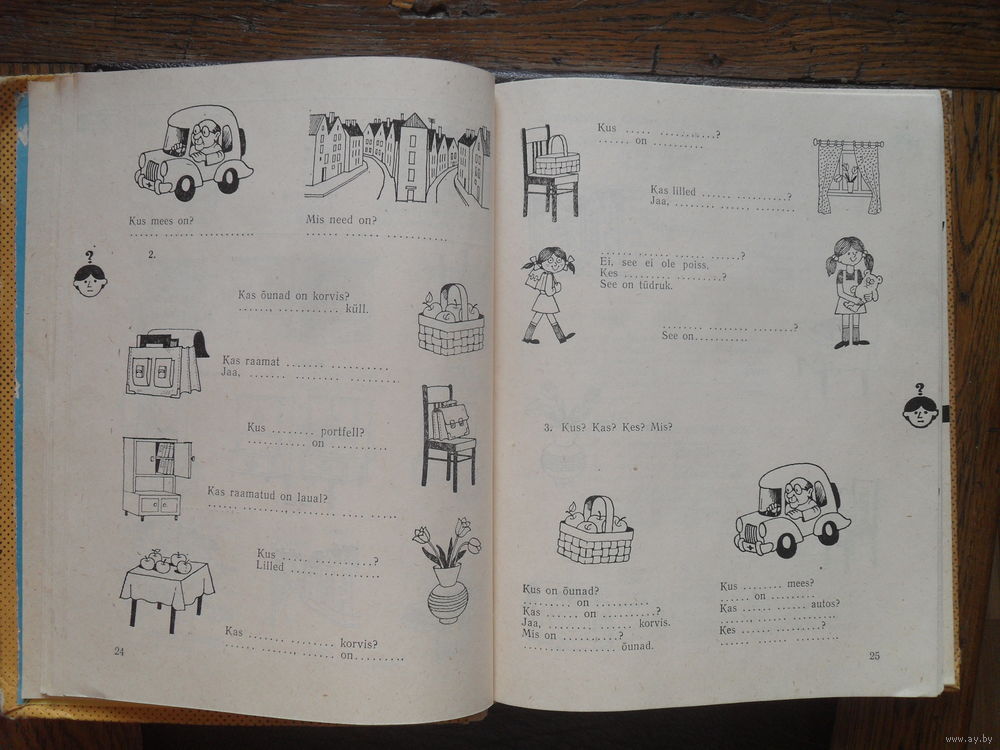 Kus mees on?
...... ...... ...... ............
Mis need on?
...... ...... ...... ............
?
2.
Kas õunad on korvis?
......., ........... küll.
Kas raamat ....... ...........
Jaa, ....... ...... ...........
Kus ........ portfell?
........... on ...........
Kas raamatud on laual?
...... ...... ...... ...... ...........
Kus ...... ...........?
Lilled ...... ...........
Kas ...... ........ korvis?
......, ...... ...... on..........
24
Kus ...... ...........?
....... on ..........
Kas lilled ...... ...........?
Jaa, ....... ...... .........
...... ...... ...... ......?
Ei, see ei ole poiss.
Kes ...... ...........?
See on tüdruk.
........ ........ ........?
See on...........
?
3. Kus? Kas? Kes? Mis?
Kus on õunad?
......... on ..........
Kas ...... on ..........?
Jaa, ...... ......... korvis.
Mis on ...........?
...... ............ õunad.
Kus ........ mees?
...... on .........
Kas ...... ....... autos?
......, ...... ...........
Kes ...... .........?
...... ...... ...........
25
www.ay.by